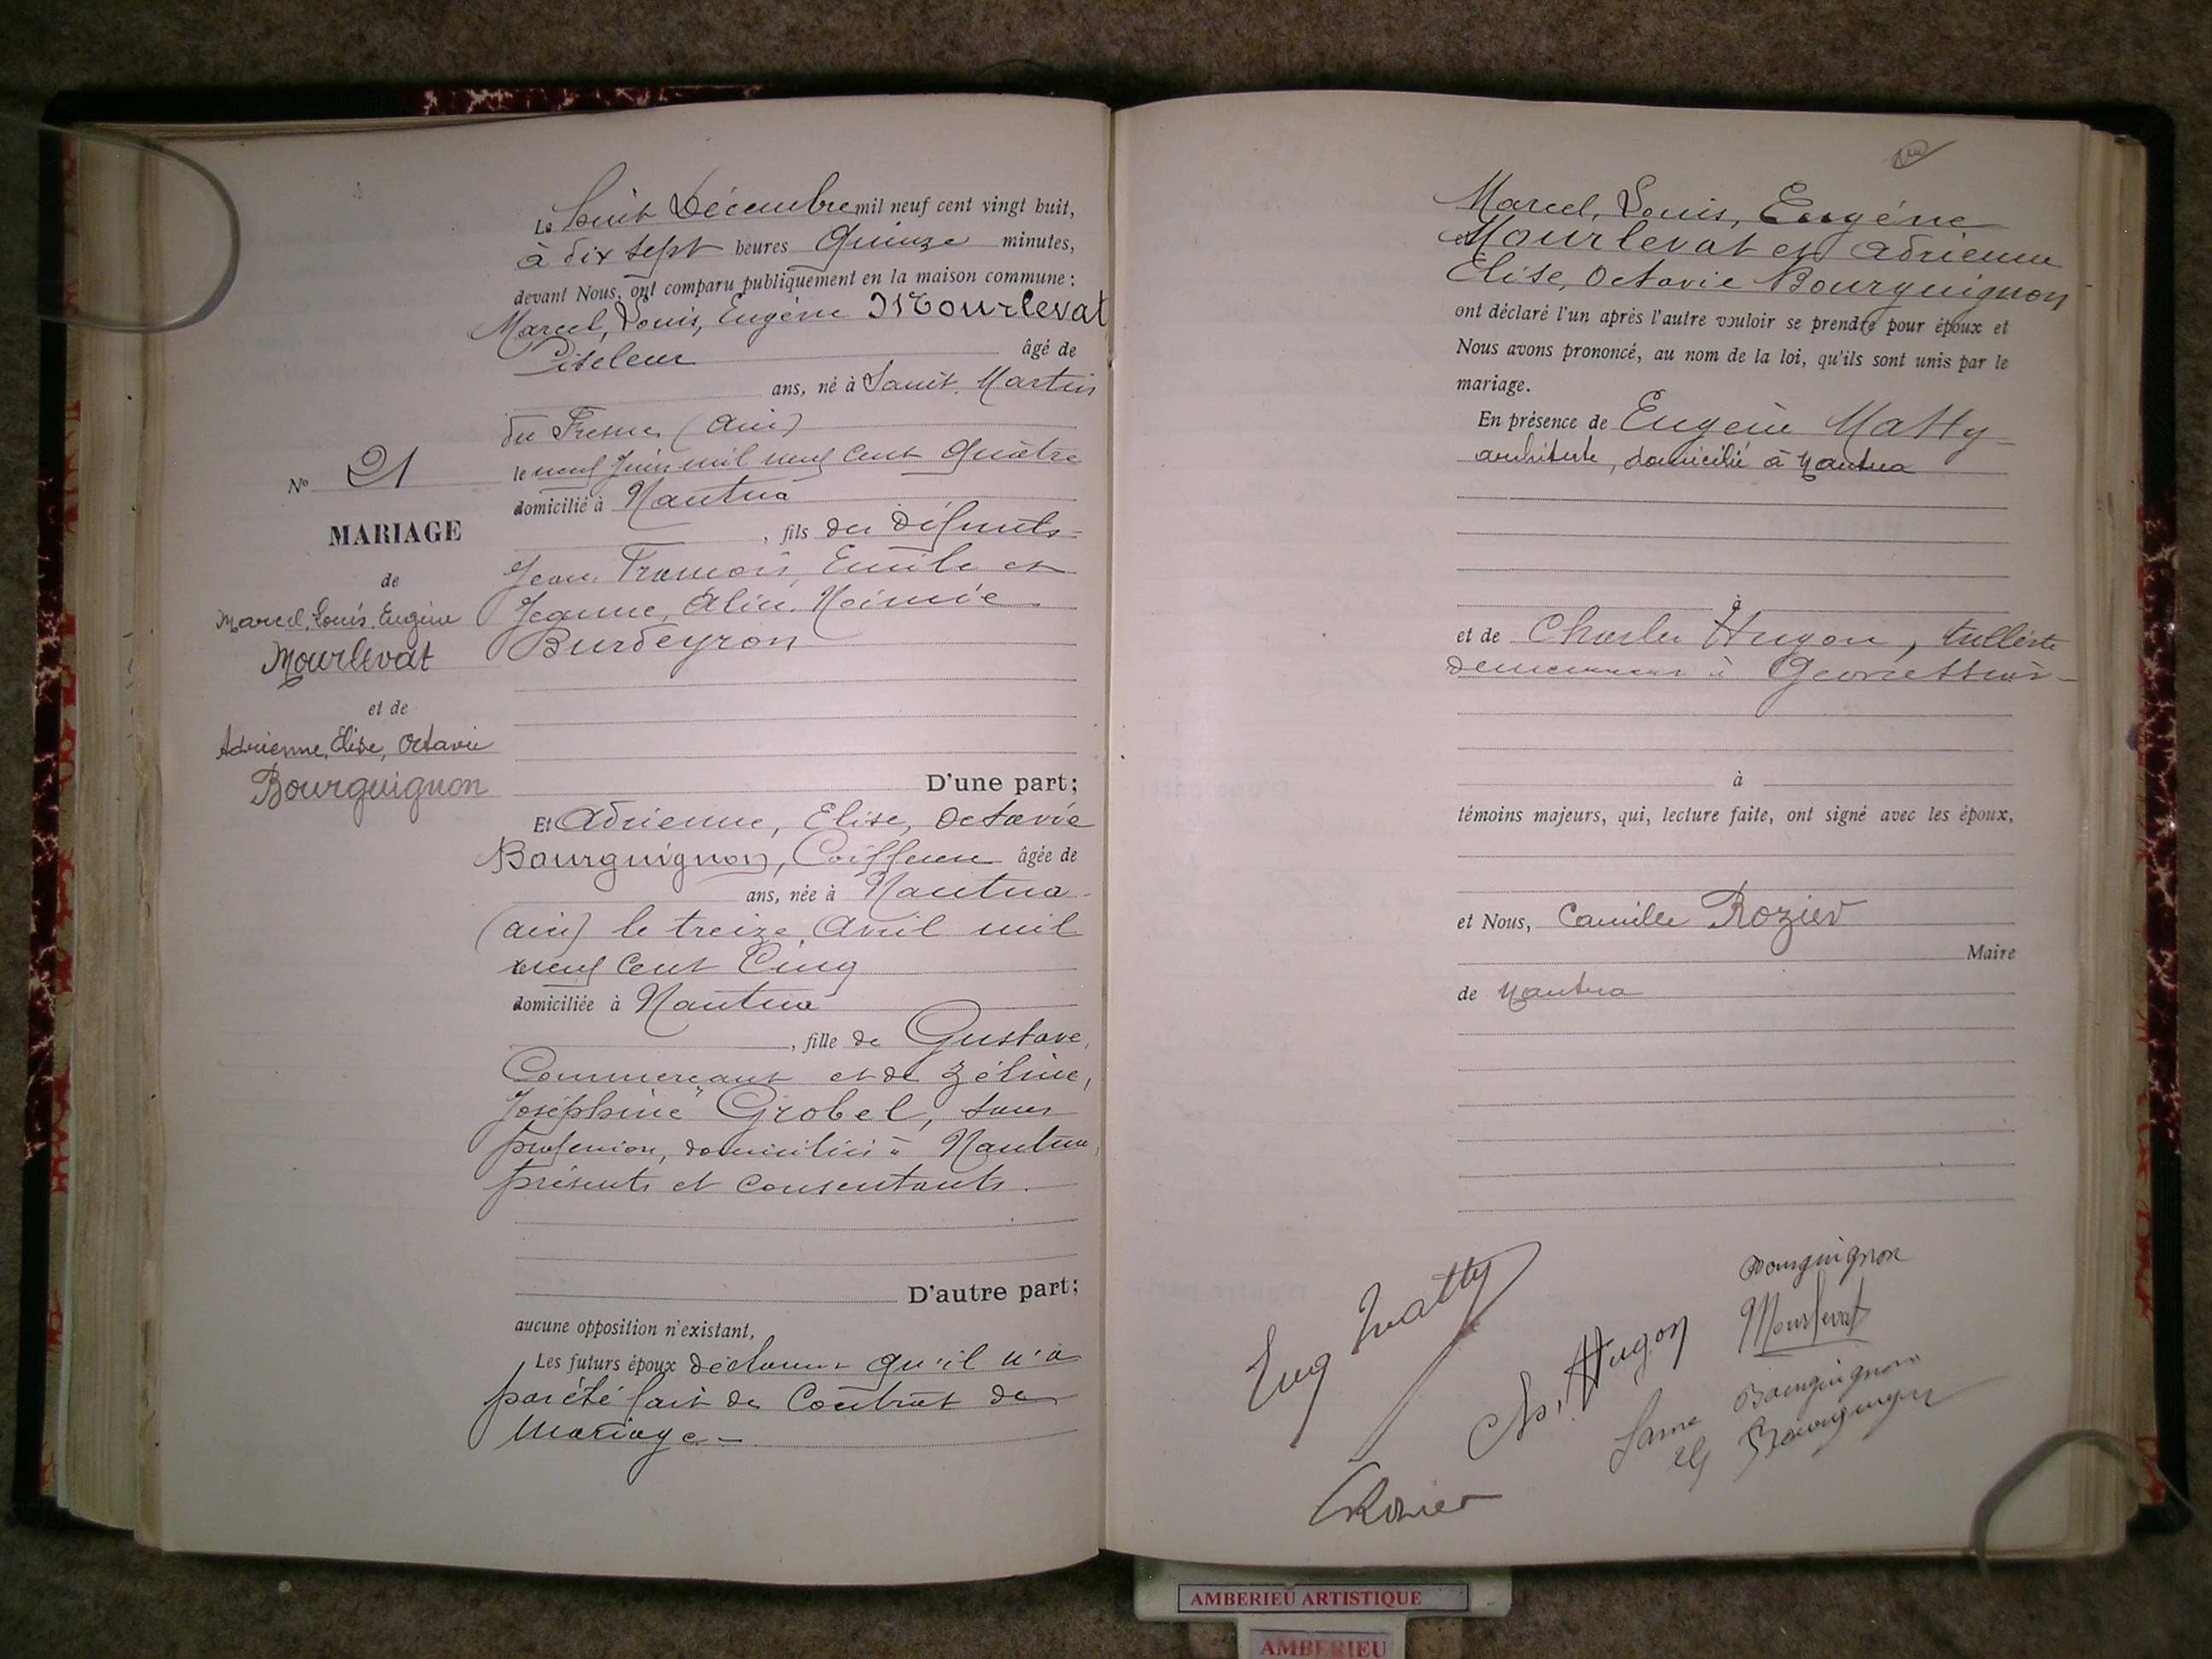 Le huit Décembre mil neuf cent vingt huit,
à dix sept heures Quinze minutes,
devant Nous, ont comparu publiquement en la maison commune :
Marcel, Louis, Eugène Mourlevat
Ciseleur âgé de
ans, né à Saint Martin
du Fresne (Ain)
le neuf Juin mil neuf cent Quatre
domicilié à Nantua
, fils des défunts
Jean François, Emile et
Jeanne, Noémie
Burdeyron
D'une part;
N° 21
MARIAGE
de
Marcel, Louis, Eugène
Mourlevat
et de
Adrienne, Elise, Octavie
Bourguignon
Et Adrienne, Elise, Octavie
Bourguignon, Coiffeuse âgée de
ans, née à Nantua
(Ain) le treize Avril mil
neuf Cent Cinq
domiciliée à Nantua
, fille de Gustave,
Commerçant et de Zéline,
Joséphine Grobel, sans
profession, domiciliés à Nantua,
présents et consentants.
D'autre part;
aucune opposition n'existant,
Les futurs époux déclarent qu'il n'a
pas été fait de Contrat de
Mariage
Marcel, Louis, Eugène
Mourlevat et Adrienne
Elise, Octavie Bourguignon
ont déclaré l'un après l'autre vouloir se prendre pour époux et
Nous avons prononcé, au nom de la loi, qu'ils sont unis par le
mariage.
En présence de Eugène Matty
architecte, domicilié à Nantua
à
et de Charles Hugon, tulliste
demeurant à Geovreissiat
à
témoins majeurs, qui, lecture faite, ont signé avec les époux,
et Nous, Camille Rozier
Maire
de Nantua
Eug Matty
Ch. Hugon
Bourguignon
Mourlevat
Bourguignon
Bourguignon
Rozier
AMBERIEU ARTISTIQUE
AMBERIEU